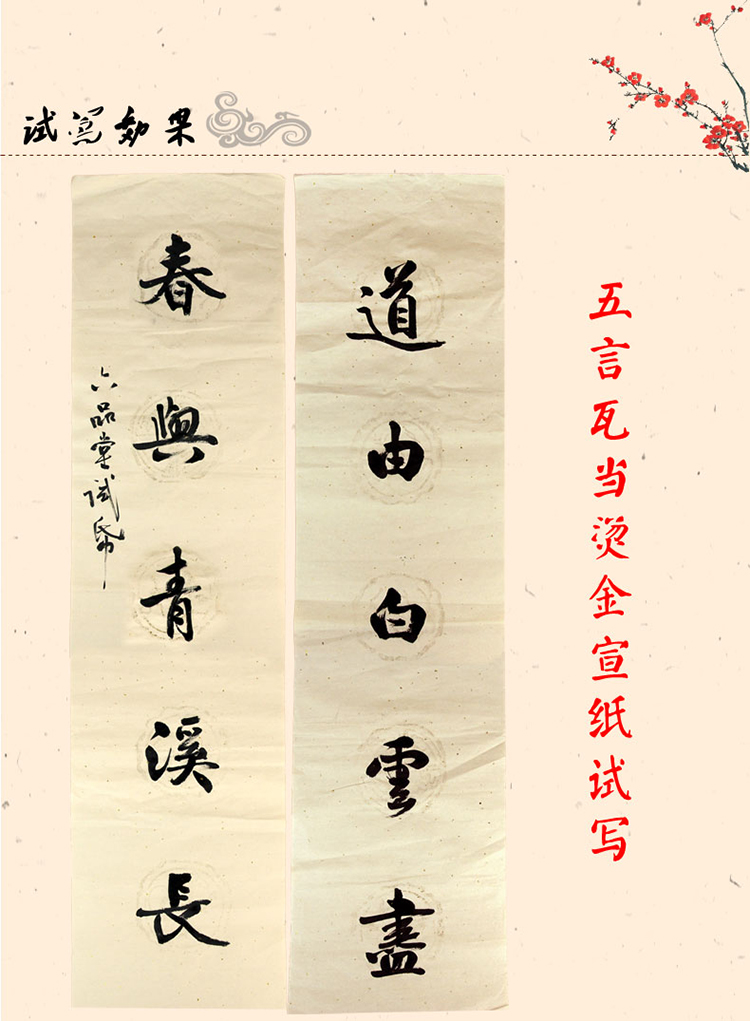 试写效果
五言瓦当烫金宣纸试写
道由白雲盡
春與青溪長
六品堂试帋